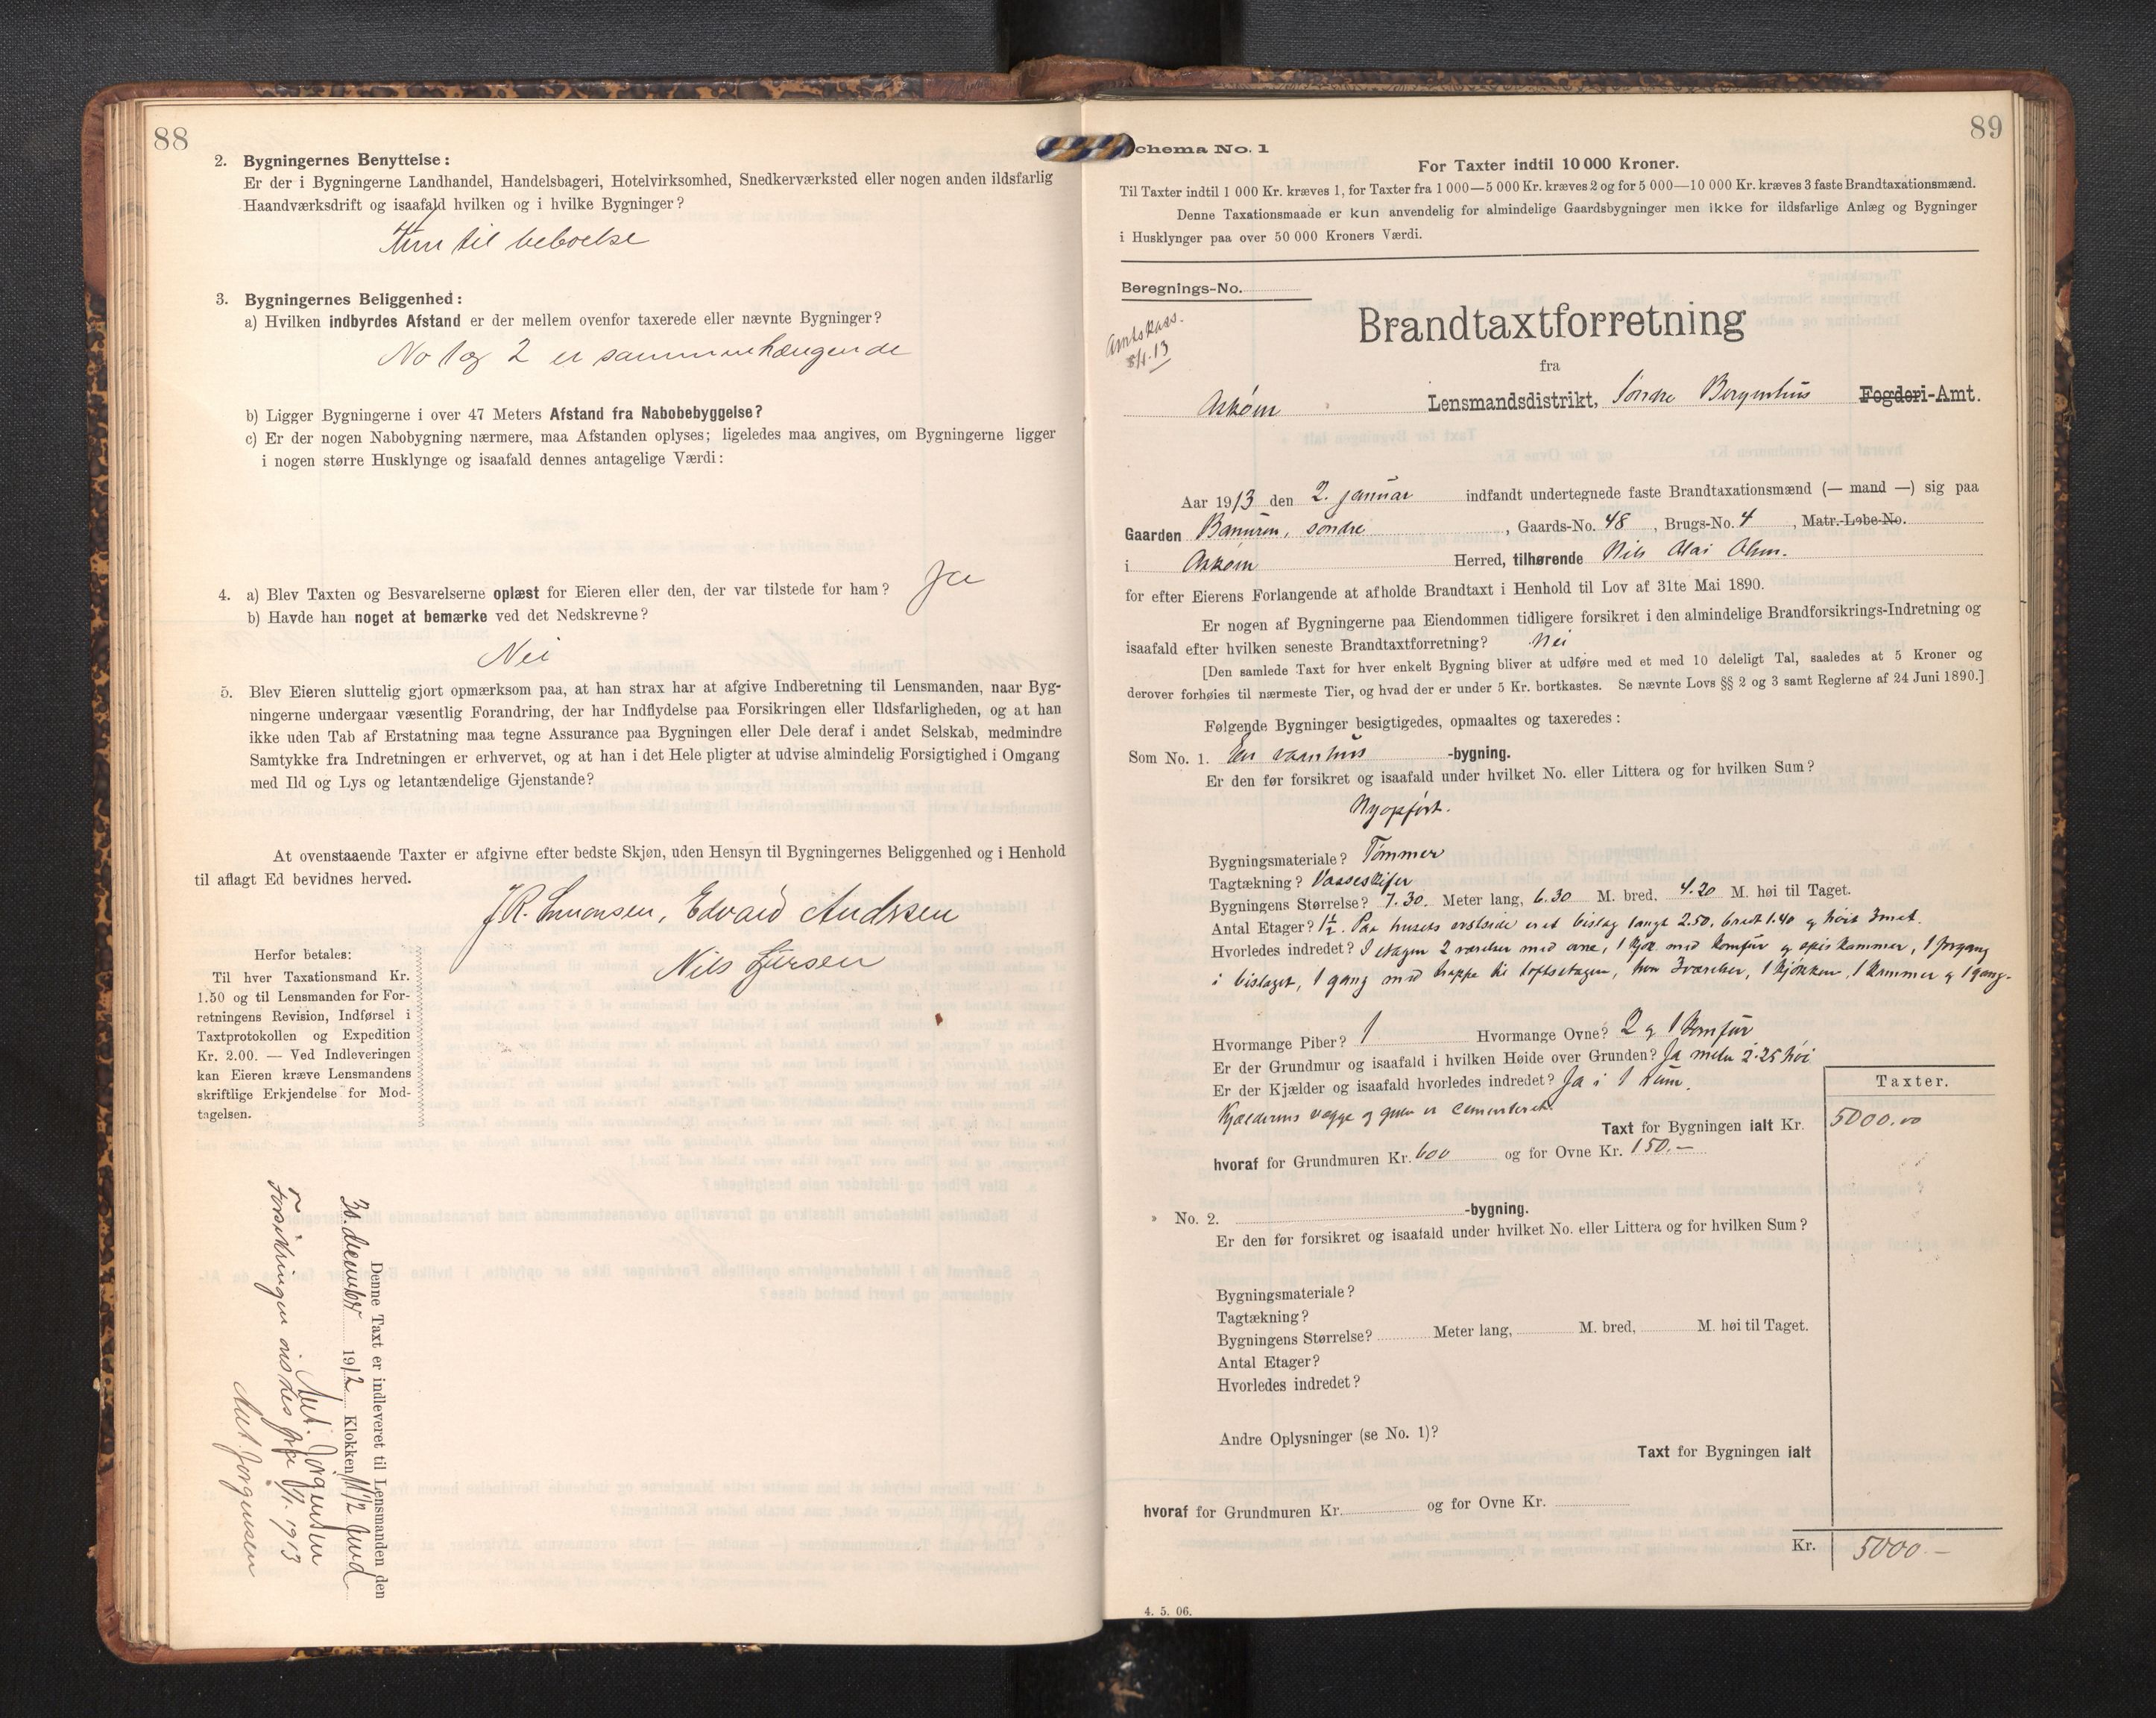 88
2. Bygningernes Benyttelse:
Er der i Bygningerne Landhandel, Handelsbageri, Hotelvirksomhed, Snedkerværksted eller nogen anden ildsfarlig
Haandværksdrift og isaafald hvilken og i hvilke Bygninger?
Kun til beboelse
3. Bygningernes Beliggenhed:
a) Hvilken indbyrdes Afstand er der mellem ovenfor taxerede eller nævnte Bygninger?
No 1 og 2 er sammenhængende
b) Ligger Bygningerne i over 47 Meters Afstand fra Nabobebyggelse?
c) Er der nogen Nabobygning nærmere, maa Afstanden oplyses; ligeledes maa angives, om Bygningerne ligger
i nogen større Husklynge og isaafald dennes antagelige Værdi:
4. a) Blev Taxten og Besvarelserne oplæst for Eieren eller den, der var tilstede for ham? Ja
b) Havde han noget at bemærke ved det Nedskrevne?
Nei
5. Blev Eieren sluttelig gjort opmærksom paa, at han strax har at afgive Indberetning til Lensmanden, naar Byg-
ningerne undergaar væsentlig Forandring, der har Indflydelse paa Forsikringen eller Ildsfarligheden, og at han
ikke uden Tab af Erstatning maa tegne Assurance paa Bygningen eller Dele deraf i andet Selskab, medmindre
Samtykke fra Indretningen er erhvervet, og at han i det Hele pligter at udvise almindelig Forsigtighed i Omgang
med Ild og Lys og letantændelige Gjenstande?
At ovenstaaende Taxter er afgivne efter bedste Skjøn, uden Hensyn til Bygningernes Beliggenhed og i Henhold
til aflagt Ed bevidnes herved.
J. R. Simonsen, Edvard Andrsen
Nils
Herfor betales:
Til hver Taxationsmand Kr.
1.50 og til Lensmanden for For-
retningens Revision, Indførsel i
Taxtprotokollen og Expedition
Kr. 2.00. — Ved Indleveringen
kan Eieren kræve Lensmandens
skriftlige Erkjendelse for Mod-
tagelsen.
Denne Taxt er indleveret til Lensmanden den
30. december 1912 Klokken 11 1/2
Ant. Jørgensen
Forsikringen 1913
Ant. Jørgensen
89
Schema No. 1
For Taxter indtil 10 000 Kroner.
Til Taxter indtil 1 000 Kr. kræves 1, for Taxter fra 1 000—5 000 Kr. kræves 2 og for 5 000—10 000 Kr. kræves 3 faste Brandtaxationsmænd.
Denne Taxationsmaade er kun anvendelig for almindelige Gaardsbygninger men ikke for ildsfarlige Anlæg og Bygninger
i Husklynger paa over 50 000 Kroners Værdi.
Beregnings-No.
Amtskass.
8/1.13
Brandtaxtforretning
fra
Askøen Lensmandsdistrikt, Søndre Bergenhus Fogderi-Amt.
Aar 1913 den 2. januar indfandt undertegnede faste Brandtaxationsmænd (— mand —) sig paa
Gaarden søndre, Gaards-No. 48, Brugs-No. 4, Matr.-Løbe-No.
i Askøen Herred, tilhørende Nils Olai Olsen.
for efter Eierens Forlangende at afholde Brandtaxt i Henhold til Lov af 31te Mai 1890.
Er nogen af Bygningerne paa Eiendommen tidligere forsikret i den almindelige Brandforsikrings-Indretning og
isaafald efter hvilken seneste Brandtaxtforretning? Nei
[Den samlede Taxt for hver enkelt Bygning bliver at udføre med et med 10 deleligt Tal, saaledes at 5 Kroner og
derover forhøies til nærmeste Tier, og hvad der er under 5 Kr. bortkastes. Se nævnte Lovs §§ 2 og 3 samt Reglerne af 24 Juni 1890.]
Følgende Bygninger besigtigedes, opmaaltes og taxeredes:
Som No. 1. En vaanhus -bygning.
Er den før forsikret og isaafald under hvilket No. eller Littera og for hvilken Sum?
Nyopført.
Bygningsmateriale? Tømmer
Tagtækning? Vasseskifer
Bygningens Størrelse? 7.30. Meter lang, 6.30 M. bred, 4.20 M. høi til Taget.
Antal Etager? 1 1/2. Paa husets er et bislag langt 2.50, bredt 1.40 og høit 3 met.
Hvorledes indredet? I etagen 2 værelser med ovne, 1 kjøk. med komfur og spiskammer, 1 forgang
i bislaget, 1 gang med trappe til loftsetagen, hvor 3 værelser, 1 kjøkken, 1 kammer og 1 gang.
Hvormange Piber? 1 Hvormange Ovne? 2 og 1 komfur
Er der Grundmur og isaafald i hvilken Høide over Grunden? Ja 2.25 høi
Er der Kjælder og isaafald hvorledes indredet? Ja i 1 rum.
Kjælderens vægge og gulv er cementeret.
Taxter.
Taxt for Bygningen ialt Kr. 5000.00
hvoraf for Grundmuren Kr. 600 og for Ovne Kr. 150.—
No. 2. -bygning.
Er den før forsikret og isaafald under hvilket No. eller Littera og for hvilken Sum?
Bygningsmateriale?
Tagtækning?
Bygningens Størrelse? Meter lang, M. bred, M. høi til Taget.
Antal Etager?
Hvorledes indredet?
Andre Oplysninger (se No. 1)?
Taxt for Bygningen ialt
hvoraf for Grundmuren Kr. og for Ovne Kr.
Kr. 5000.—
4. 5. 06.